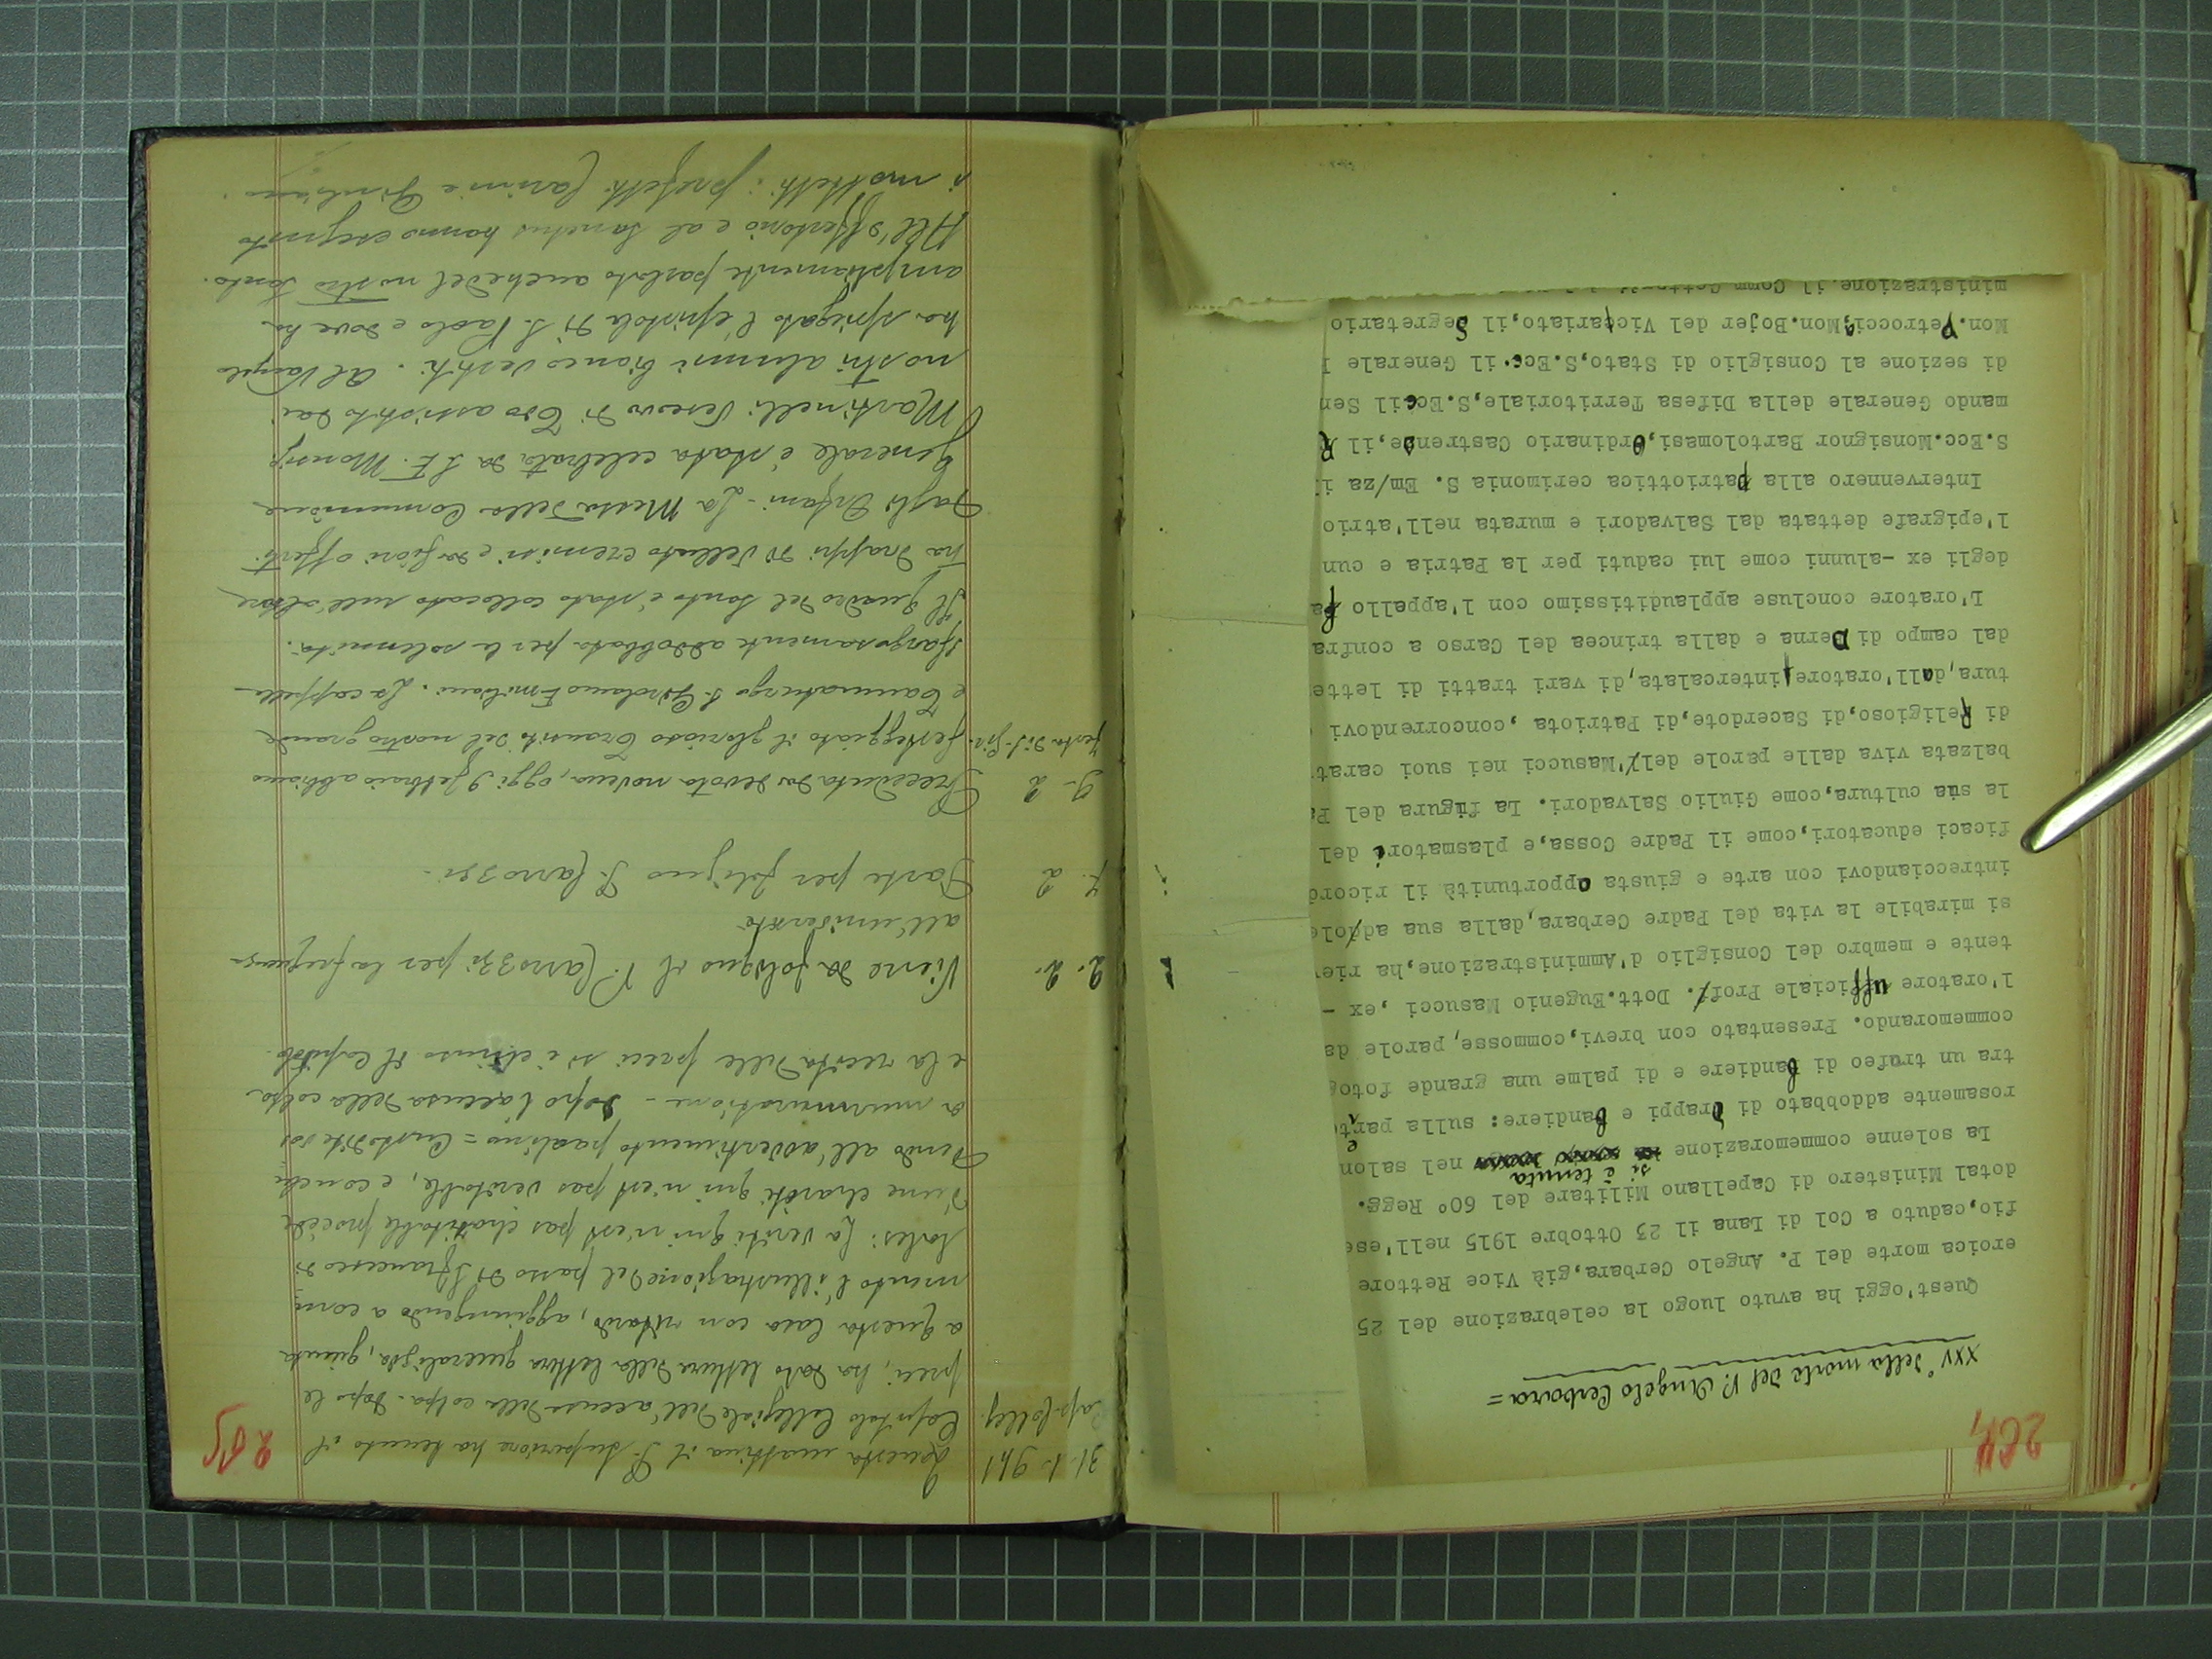 264
XXV° della morte del P. Angelo Cerbara =
Quest'oggi ha avuto luogo la celebrazione del 25
eroica morte del P. Angelo Cerbara,già Vice Rettore
fio,caduto a Col di Lana il 23 Ottobre 1915 nell'ese
dotal Ministero di Capellano Militare del 60° Regg.
si è tenuta
La solenne commemorazione nel salon
rosamente addobbato di drappi e bandiere: sulla paret
tra un trofeo di bandiere e di palme una grande fotog
commemorando. Presentato con brevi,commosse, parole da
l'oratore ufficiale Prof. Dott.Eugenio Masucci ,ex -
tente e membro del Consiglio d'Amministrazione,ha riev
si mirabile la vita del Padre Cerbara,dalla sua adole
intrecciandovi con arte e giusta opportunità il ricord
ficaci educatori,come il Padre Cossa,e plasmatori del
la sua cultura,come Giulio Salvadori. La figura del Pa
balzata viva dalle parole dell'Masucci nei suoi carat
di Religioso,di Sacerdote,di Patriota ,concorrendovi
tura,dall'oratore intercalata,di vari tratti di lette
dal campo di Derna e dalla trincea del Carso a confra
L'oratore concluse applauditissimo con l'appello fa
degli ex -alunni come lui caduti per la Patria e cun
l'epigrafe dettata dal Salvadori e murata nell'atrio
Intervennero alla patriottica cerimonia S. Em/za il
S.Ecc.Monsignor Bartolomasi,Ordinario Castrense,il R
mando Generale della Difesa Territoriale,S.Ecc.il Sen
di sezione al Consiglio di Stato,S.Ecc.il Generale
Mon.Petrocci,Mon.Bojer del Vicariato,il Segretario
ministrazione.il Comm
265
31-1-941 Questa mattina il P. Superiore ha tenuto il
Cap. Colleg. Capitolo Collegiale dell'accusa della colpa. Dopo le
preci, ha dato lettura della lettera generalizia, giunta
a questa Casa con ritardo, aggiungendo a com
mento l'illustrazione del passo di S. Francesco di
Sales: La verité qui n'est pas charitable procède
d'une charité qui n'est pas veritable, e conclu
dendo all'avvertimento paolino = Custodite vos
a murmuratione - Dopo l'accusa della colpa
e la recita delle preci si è chiuso il Capitolo.
2-2- Viene da Foligno il P. Carrozzi per la frequenza
all'università
7-2 Parte per Foligno P. Carrozzi -
9-2 Preceduta da devota novena, oggi 9 febbraio abbiamo
Festa di S. Gir. festeggiato il glorioso Transito del nostro grande
e taumaturgo S. Girolamo Emiliani. La cappella
sfarzosamente addobbata per la solennità.
Il quadro del Santo è stato collocato sull'altare
tra drappi di velluto cremisi e da fiori offerti
dagli Orfani - La Messa della Comunione
Generale è stata celebrata da S.E. Monsig.
Martinelli Vescovo di assistito dai
nostri alunni bianco vestiti. Al Vangelo
ha spiegato l'epistola di S. Paolo e dove ha
ampiamente parlato anche del nostro Santo.
All'offertorio e al Sanctus hanno eseguito
i mottetti: prefetti Carini e